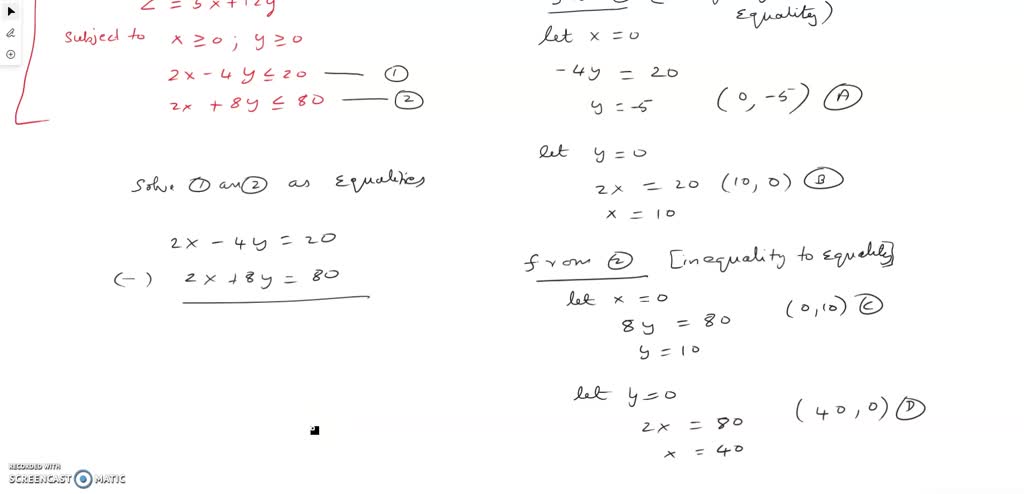 = 5x+12y
Subject to x ≥ 0 ; y ≥ 0
2x - 4y ≤ 20 — ①
2x + 8y ≤ 80 — ②
Solve ① an ② as Equalities
2x - 4y = 20
(-) 2x + 8y = 80
Equality)
let x = 0
-4y = 20
y = -5 (0, -5) Ⓐ
let y = 0
2x = 20 (10, 0) Ⓑ
x = 10
from ② [inequality to Equality]
let x = 0
8y = 80 (0, 10) Ⓒ
y = 10
let y = 0
2x = 80 (40, 0) Ⓓ
x = 40
RECORDED WITH
SCREENCAST MATIC